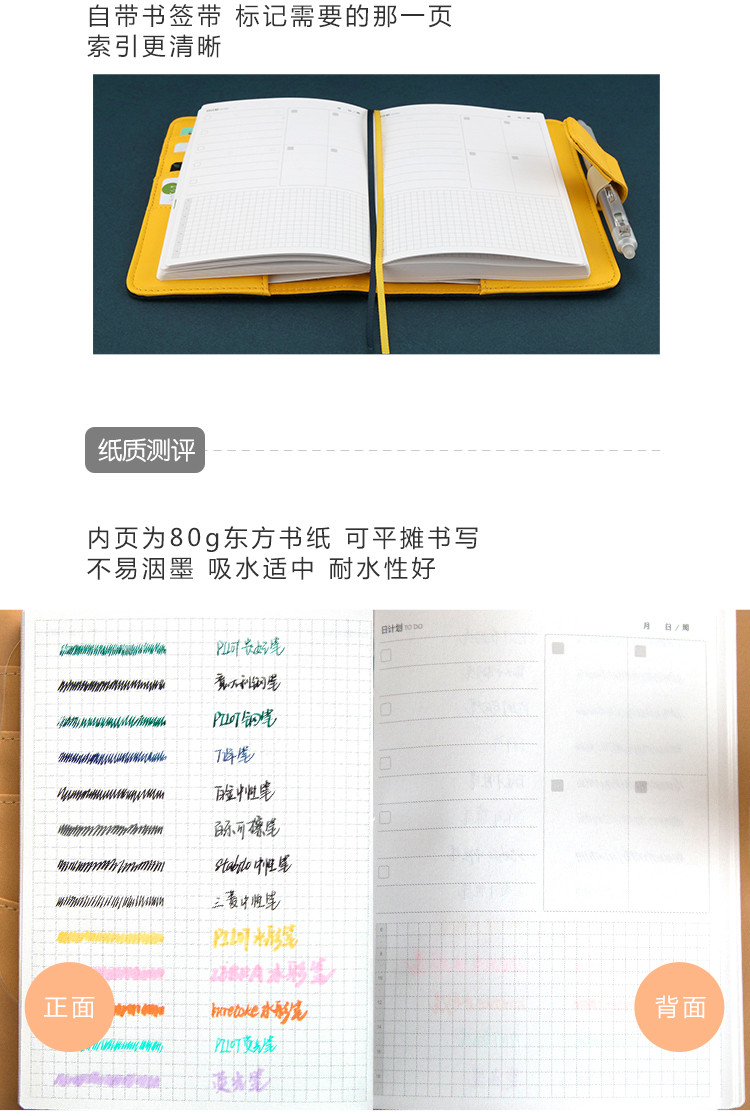 自带书签带 标记需要的那一页
索引更清晰
纸质测评
内页为80g东方书纸 可平摊书写
不易洇墨 吸水适中 耐水性好
日计划 TO DO
月 日 / 周
意大利钢笔
PILOT钢笔
百金中性笔
百乐可擦笔
Stabilo中性笔
三菱中性笔
PILOT水彩笔
ZEBRA水彩笔
水彩笔
PILOT荧光笔
荧光笔
正面
背面